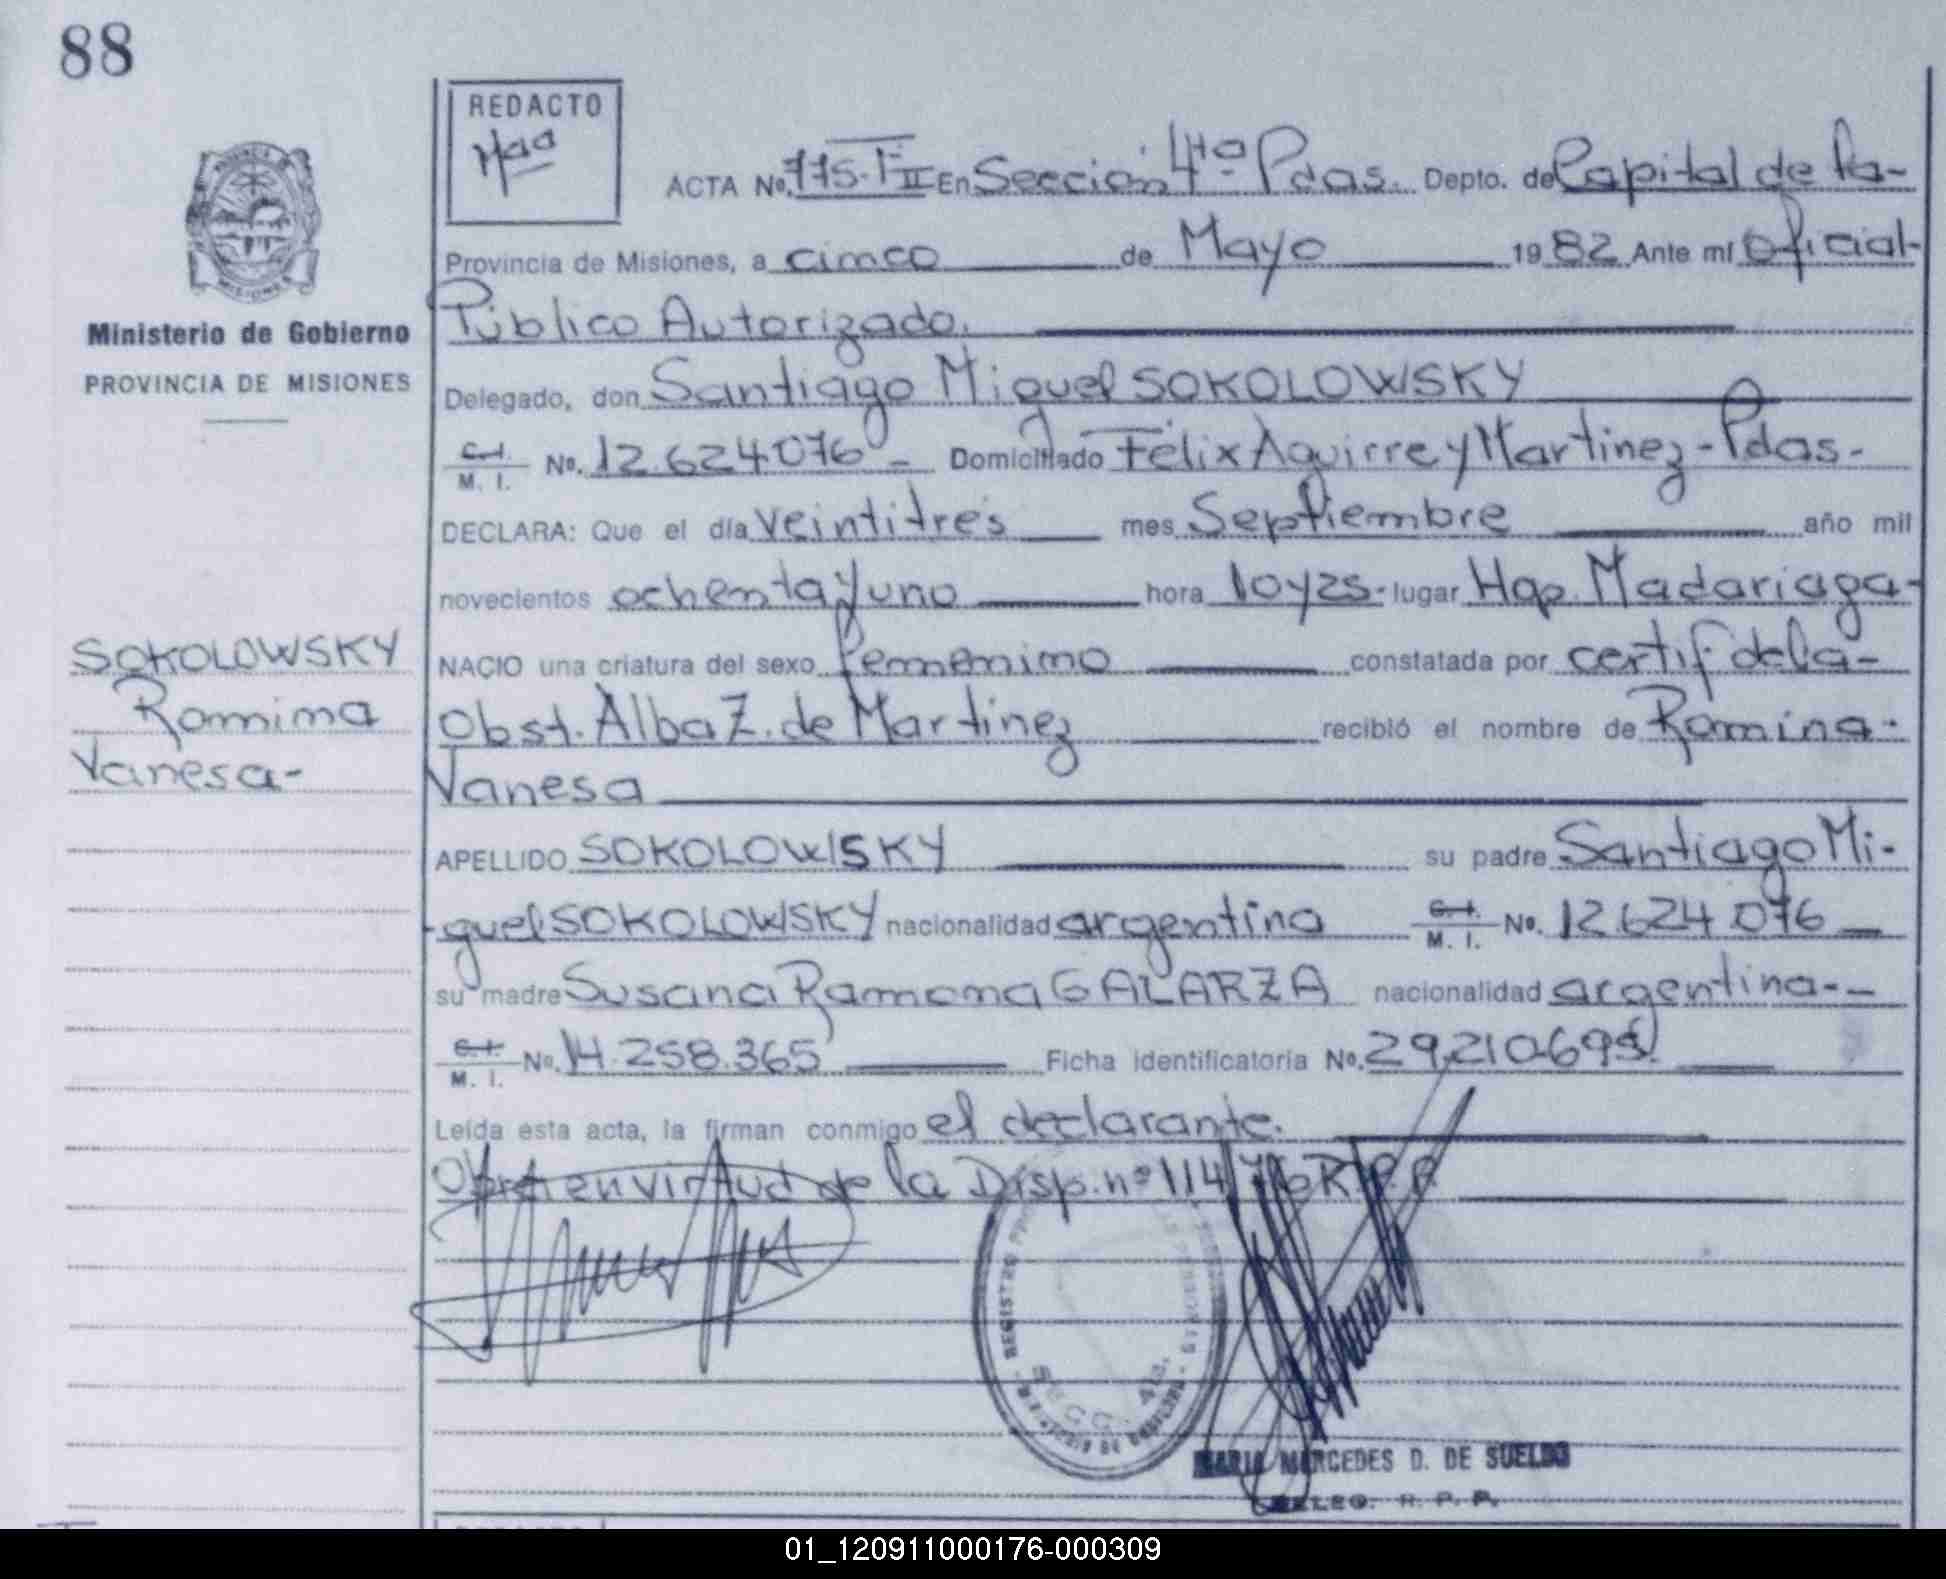 88
REDACTO
ACTA No. 775. Tº II En Sección 4ta. Pdas. Depto. de Capital de la-
Provincia de Misiones, a cinco de Mayo 1982 Ante mí Oficial-
Público Autorizado.
Ministerio de Gobierno
PROVINCIA DE MISIONES
Delegado, don Santiago Miguel SOKOLOWSKY
C.I. M. I. No. 12.624.076 - Domiciliado Félix Aguirre y Martinez - Pdas-
DECLARA: Que el día veintitrés mes Septiembre año mil
novecientos ochenta y uno hora 10 y 25. lugar Hop. Madariaga-
SOKOLOWSKY
Romina
Vanesa-
NACIO una criatura del sexo femenino constatada por certif de la-
Obst. Alba Z. de Martinez recibió el nombre de Romina-
Vanesa
APELLIDO SOKOLOWSKY su padre Santiago Mi-
guel SOKOLOWSKY nacionalidad argentino C.I. M. I. No. 12.624.076
su madre Susana Ramona GALARZA nacionalidad argentina--
C.I. M. I. No. 14.258.365 Ficha identificatoria No. 29.210.695
Leída esta acta, la firman conmigo el declarante.
en virtud de la Disp. nº 114/76 R.P.P.
REGISTRO
SECC. 4ta.
MINISTERIO DE GOBIERNO
MARIA MERCEDES D. DE SUELDO
DELEG. R. P. P.
01_120911000176-000309